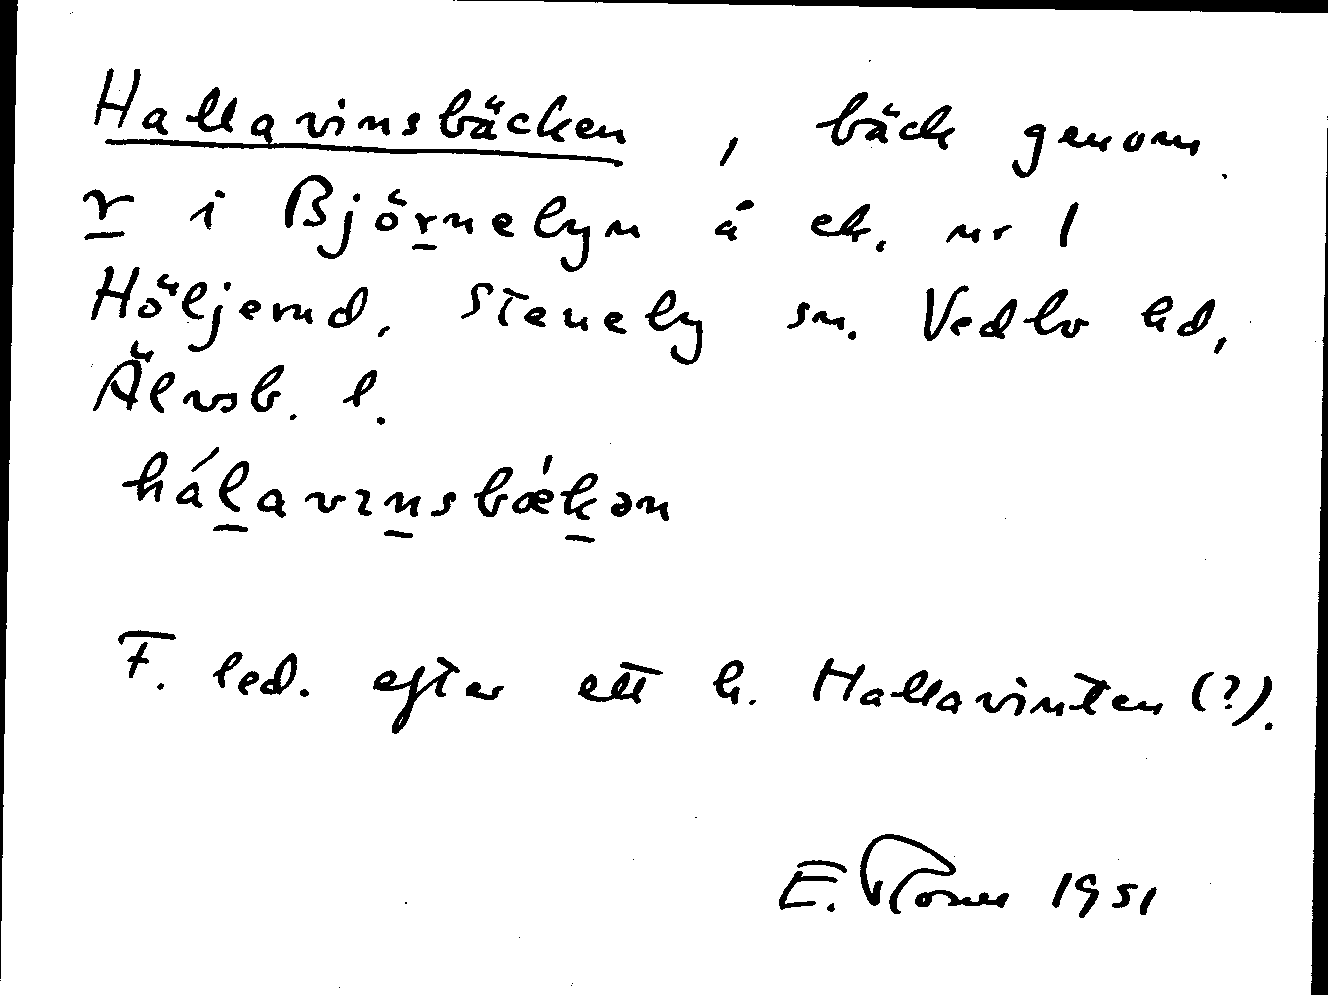 Hallavinsbäcken, bäck genom
r i Björnelyn å ek. nr 1
Höljerud, Steneby sn. Vedbo hd,
Älvsb. l.
hálavɪnsbækən
F. led. efter ett h. Hallavinten (?).
E. 1951